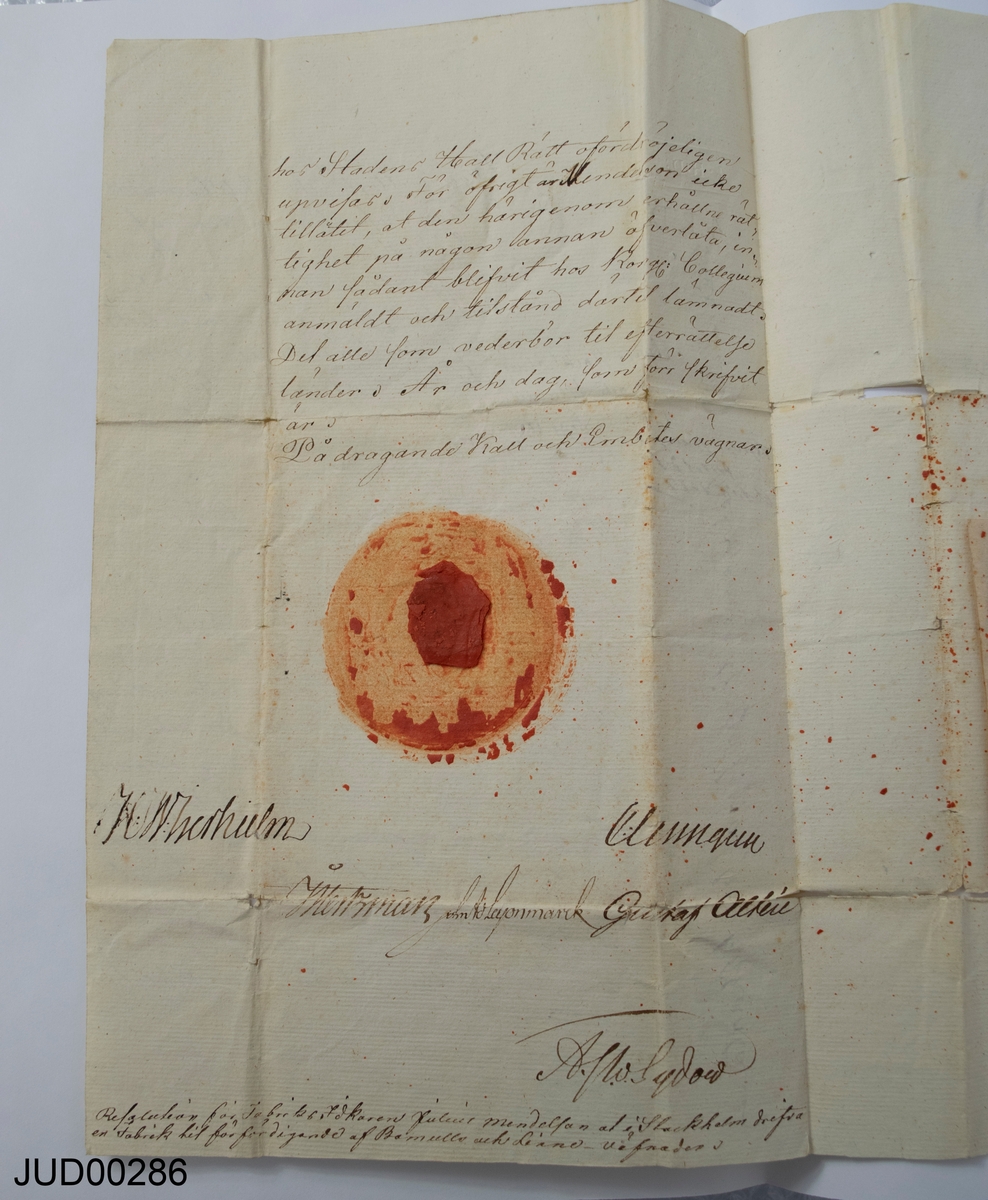 hos Stadens Hall Rätt ofördröjeligen
upvisas. För öfrigt är Mendelson icke
tillåtit, at den härigenom erhållne rät-
tighet på någon annan öfverlåta, in-
nan sådant blifvit hos Kongl: Collegium
anmäldt och tilstånd därtil lämnadt.
Det alle som vederbör til efterrättelse
länder. År och dag, som förr skrifvit
är.
På dragande Kall och Embetes vägnar.
Gustaf
A. V. Sydow
Resolution för Fabriks Idkaren Julius Mendelson at i Stockholm drifva
en Fabrik til förfärdigande af Bomulls och Linne-väfnader.
JUD00286